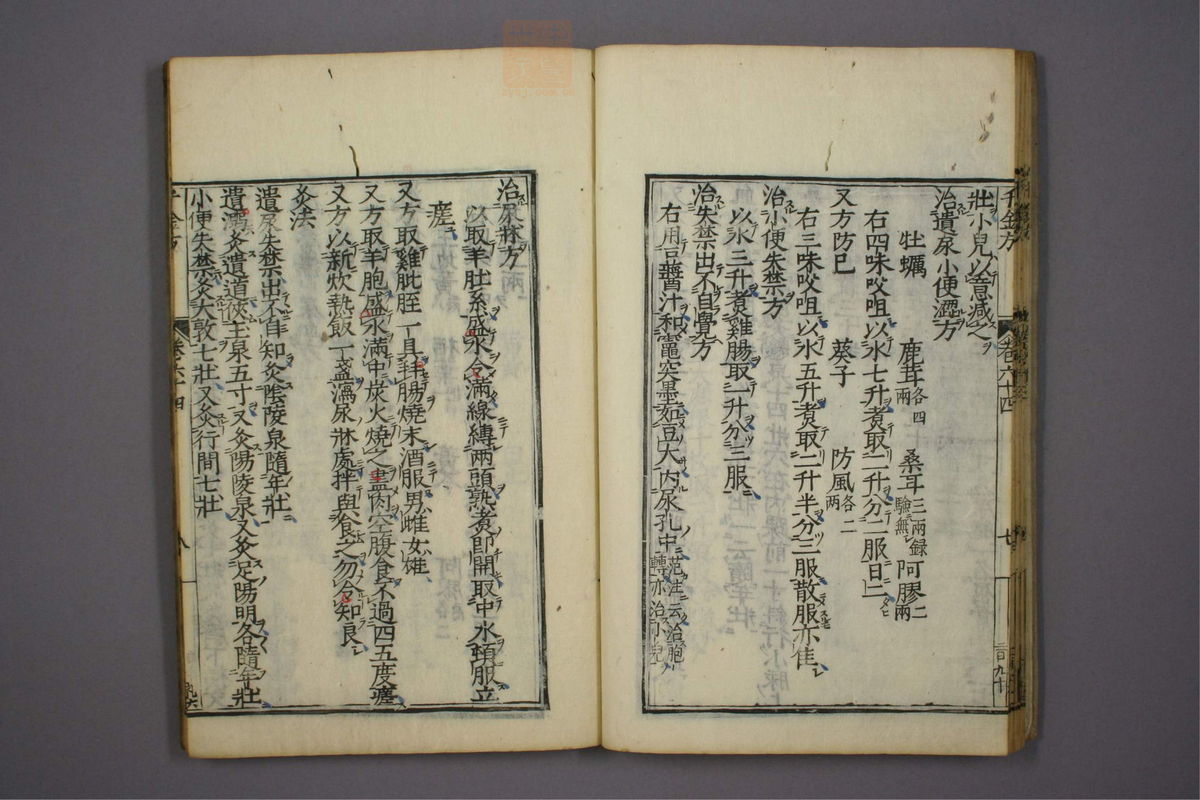 千金方
卷六十四
壯小兒以意減之
治遺尿小便澀方
牡蠣 鹿茸各四兩 桑耳三兩録驗無 阿膠二兩
右四味㕮咀以水七升煮取二升分二服日二
又方防已 葵子 防風各二兩
右三味㕮咀以水五升煮取二升半分三服散服亦佳
治小便失禁方
以水三升煮雞腸取一升分三服
治失禁出不自覺方
右用豆醬汁和竈突墨如豆大內尿孔中范汪云治胞轉亦治小兒
治尿牀方
以取羊肚系盛水令滿線縛兩頭熟煮即開取中水頓服立
瘥
又方取雞肶胵一具并腸燒末酒服男雌女雄
又方取羊胞盛水滿中炭火燒之盡肉空腹食不過四五度瘥
又方以新炊熱飯一盞瀉尿牀處拌與食之勿令知良
灸法
遺尿失禁出不自知灸陰陵泉隨年壯
遺溺灸遺道俠玉泉五寸又灸陽陵泉又灸足陽明各隨年壯
小便失禁灸大敦七壯又灸行間七壯
千金方
卷六十四